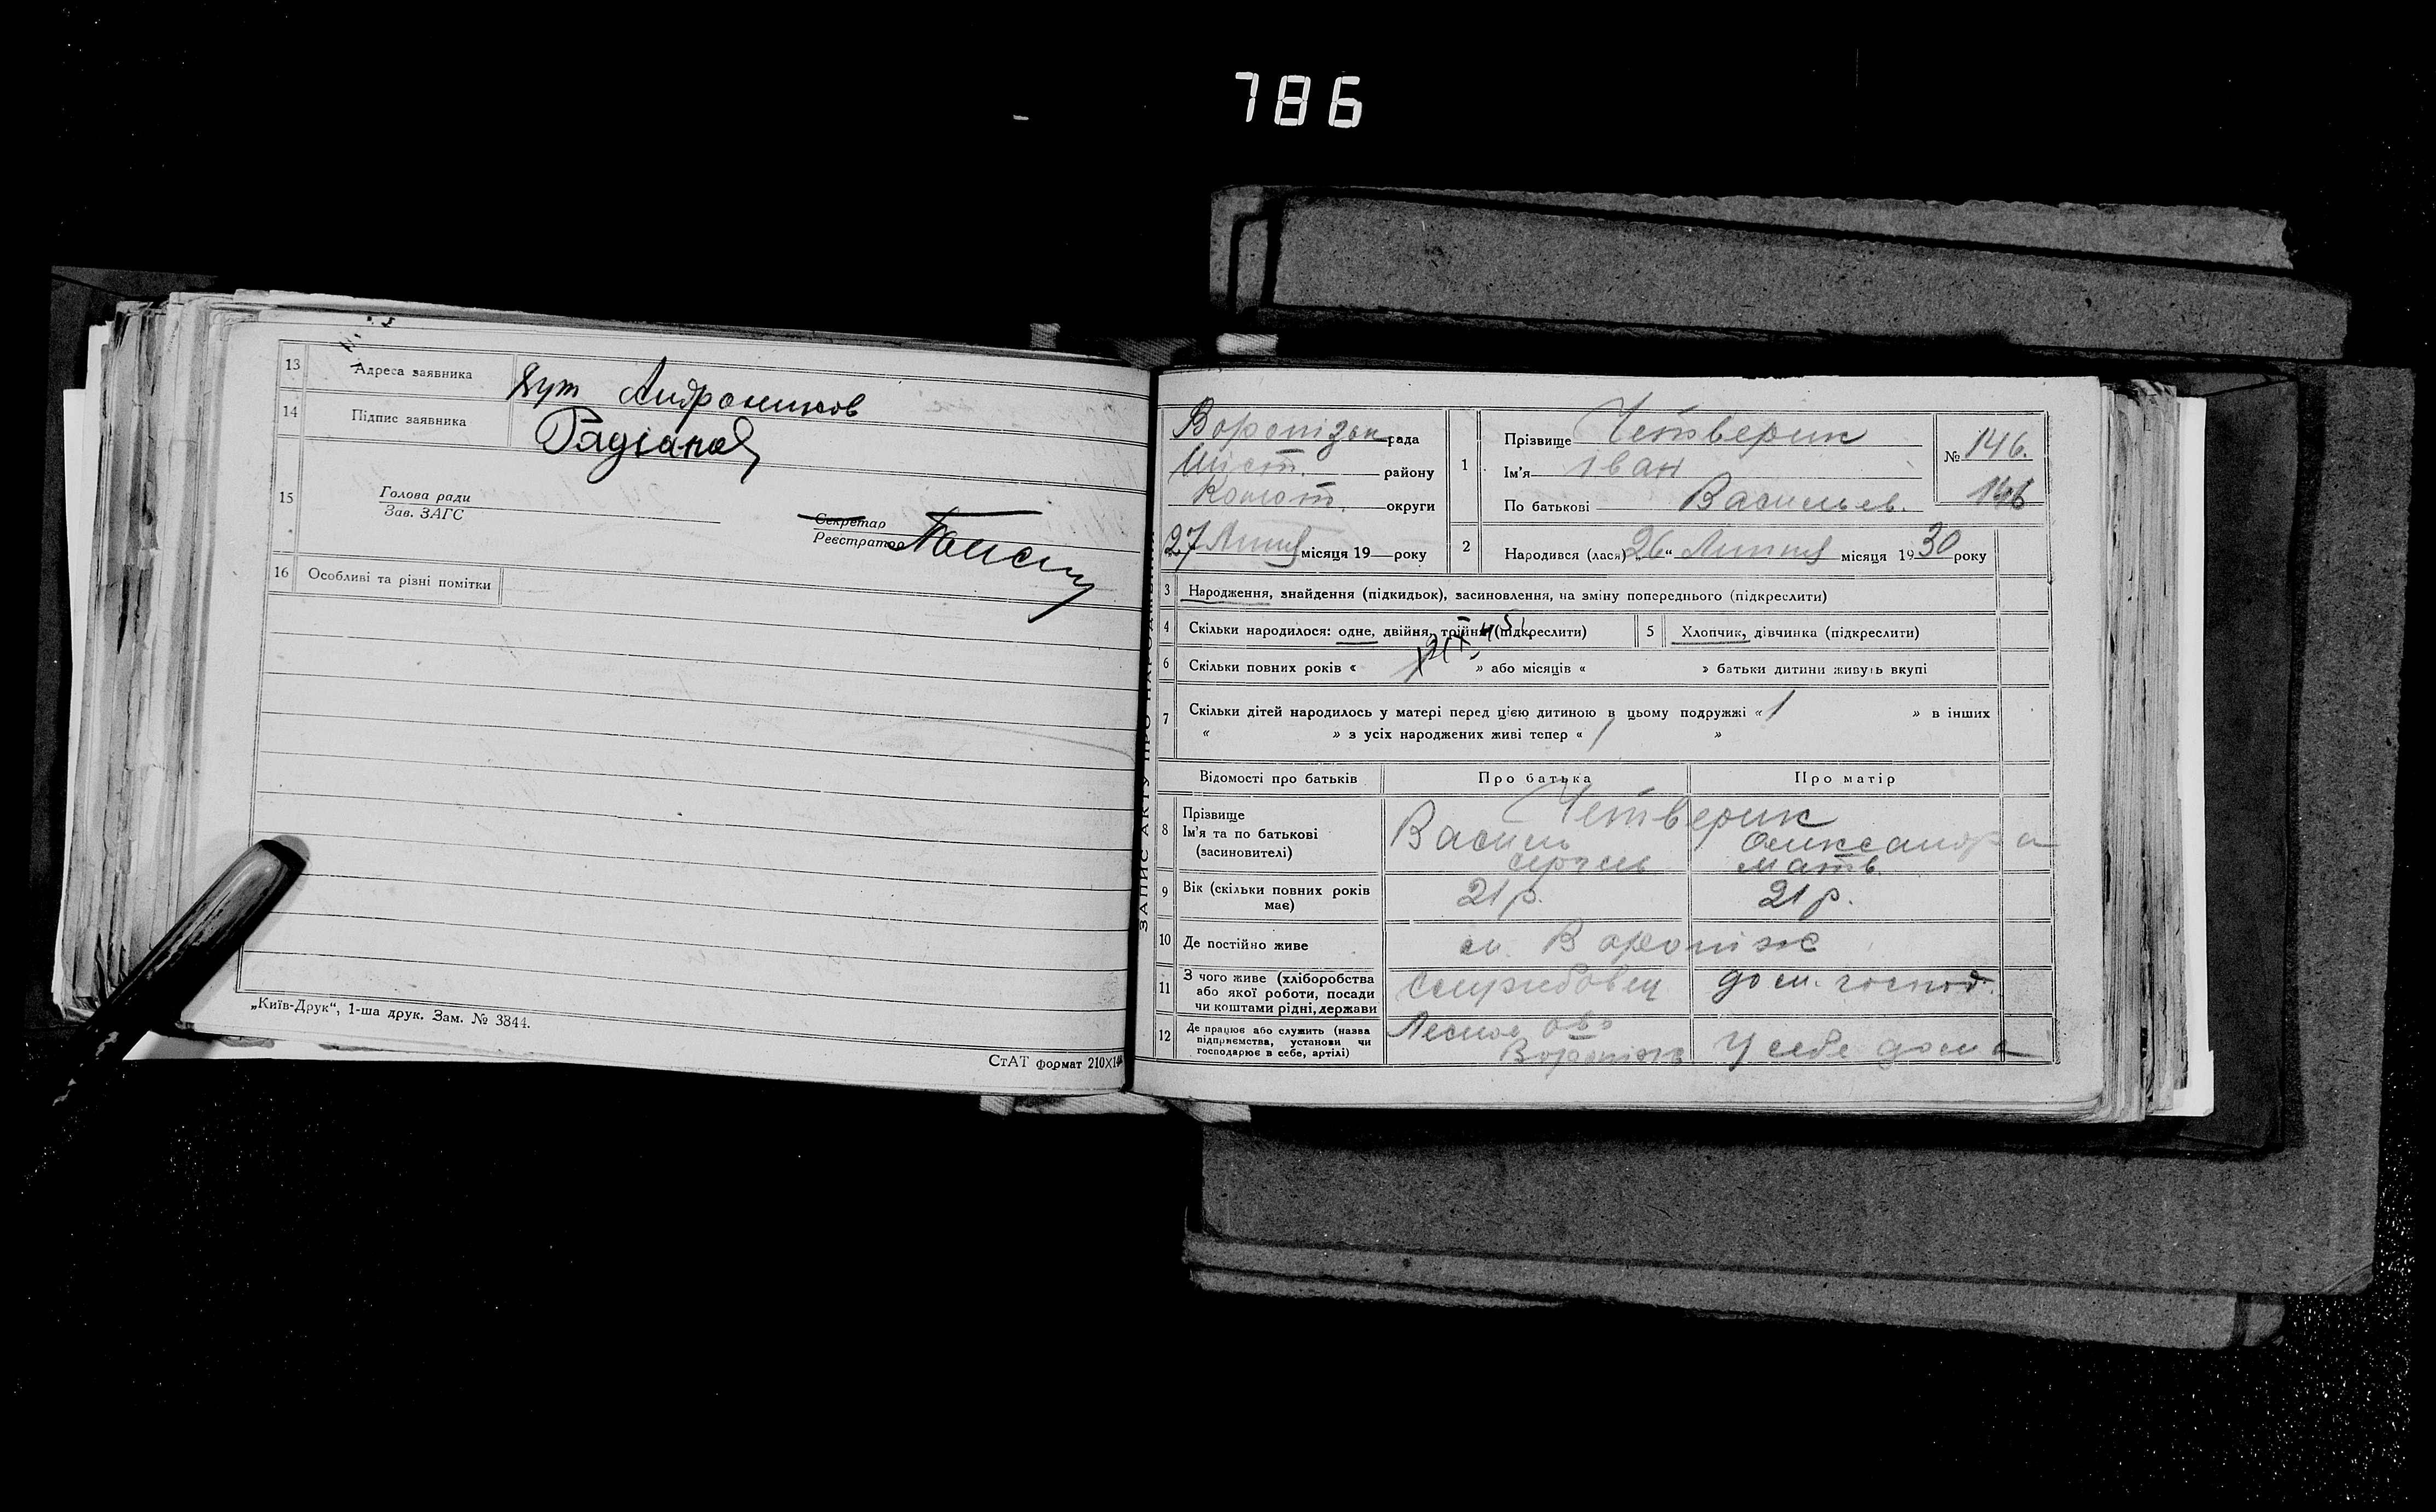 786
13 Адреса заявника Хут Андроников
14 Підпис заявника
15 Голова ради
Зав. ЗАГС
Секретар
Реєстратор
16 Особливі та різні помітки
„Київ-Друк“, 1-ша друк. Зам. № 3844.
СтАТ формат 210×14
ЗАПИС АКТУ ПРО НАРОДЖЕННЯ
Воронізьк рада
Шіст. району
Конот. округи
27 Липня місяця 19 року
1 Прізвище Четверик
Ім'я Іван
По батькові Васильев.
№ 146.
146
2 Народився (лася) „26“ Липня місяця 1930 року
3 Народження, знайдення (підкидьок), засиновлення, на зміну попереднього (підкреслити)
4 Скільки народилося: одне, двійня, трійня (підкреслити) 5 Хлопчик, дівчинка (підкреслити)
6 Скільки повних років « » або місяців « » батьки дитини живуть вкупі
7 Скільки дітей народилось у матері перед цією дитиною в цьому подружжі «1 » в інших
« » з усіх народжених живі тепер « 1 »
Відомості про батьків Про батька Про матір
8 Прізвище Четверик
Ім'я та по батькові Василь Олександра
(засиновителі) Матв.
9 Вік (скільки повних років має) 21 р. 21 р.
10 Де постійно живе м. Вороніж
11 З чого живе (хліборобства
або якої роботи, посади
чи коштами рідні, держави дом. господ.
12 Де працює або служить (назва
підприємства, установи чи
господарює в себе, артілі) Вороніж У себе дома